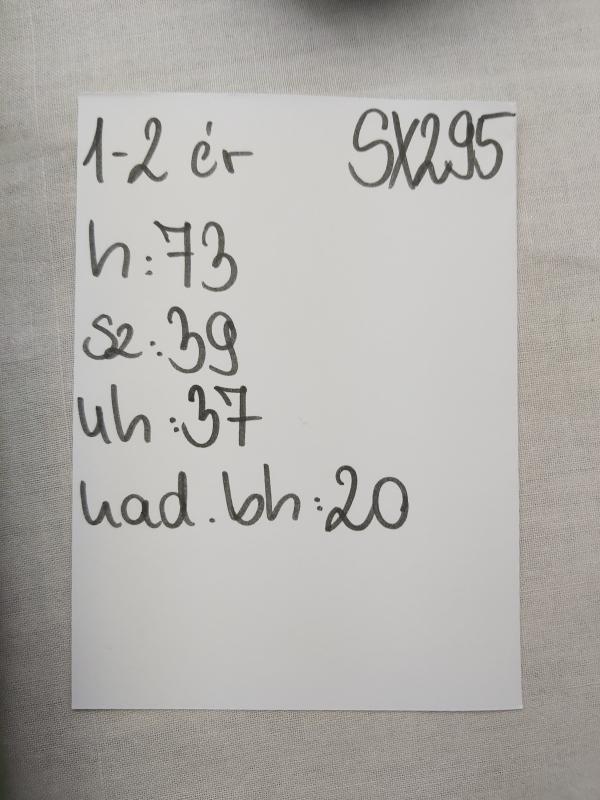 1-2 ér SX295
h:73
sz:39
uh:37
nad.bh:20